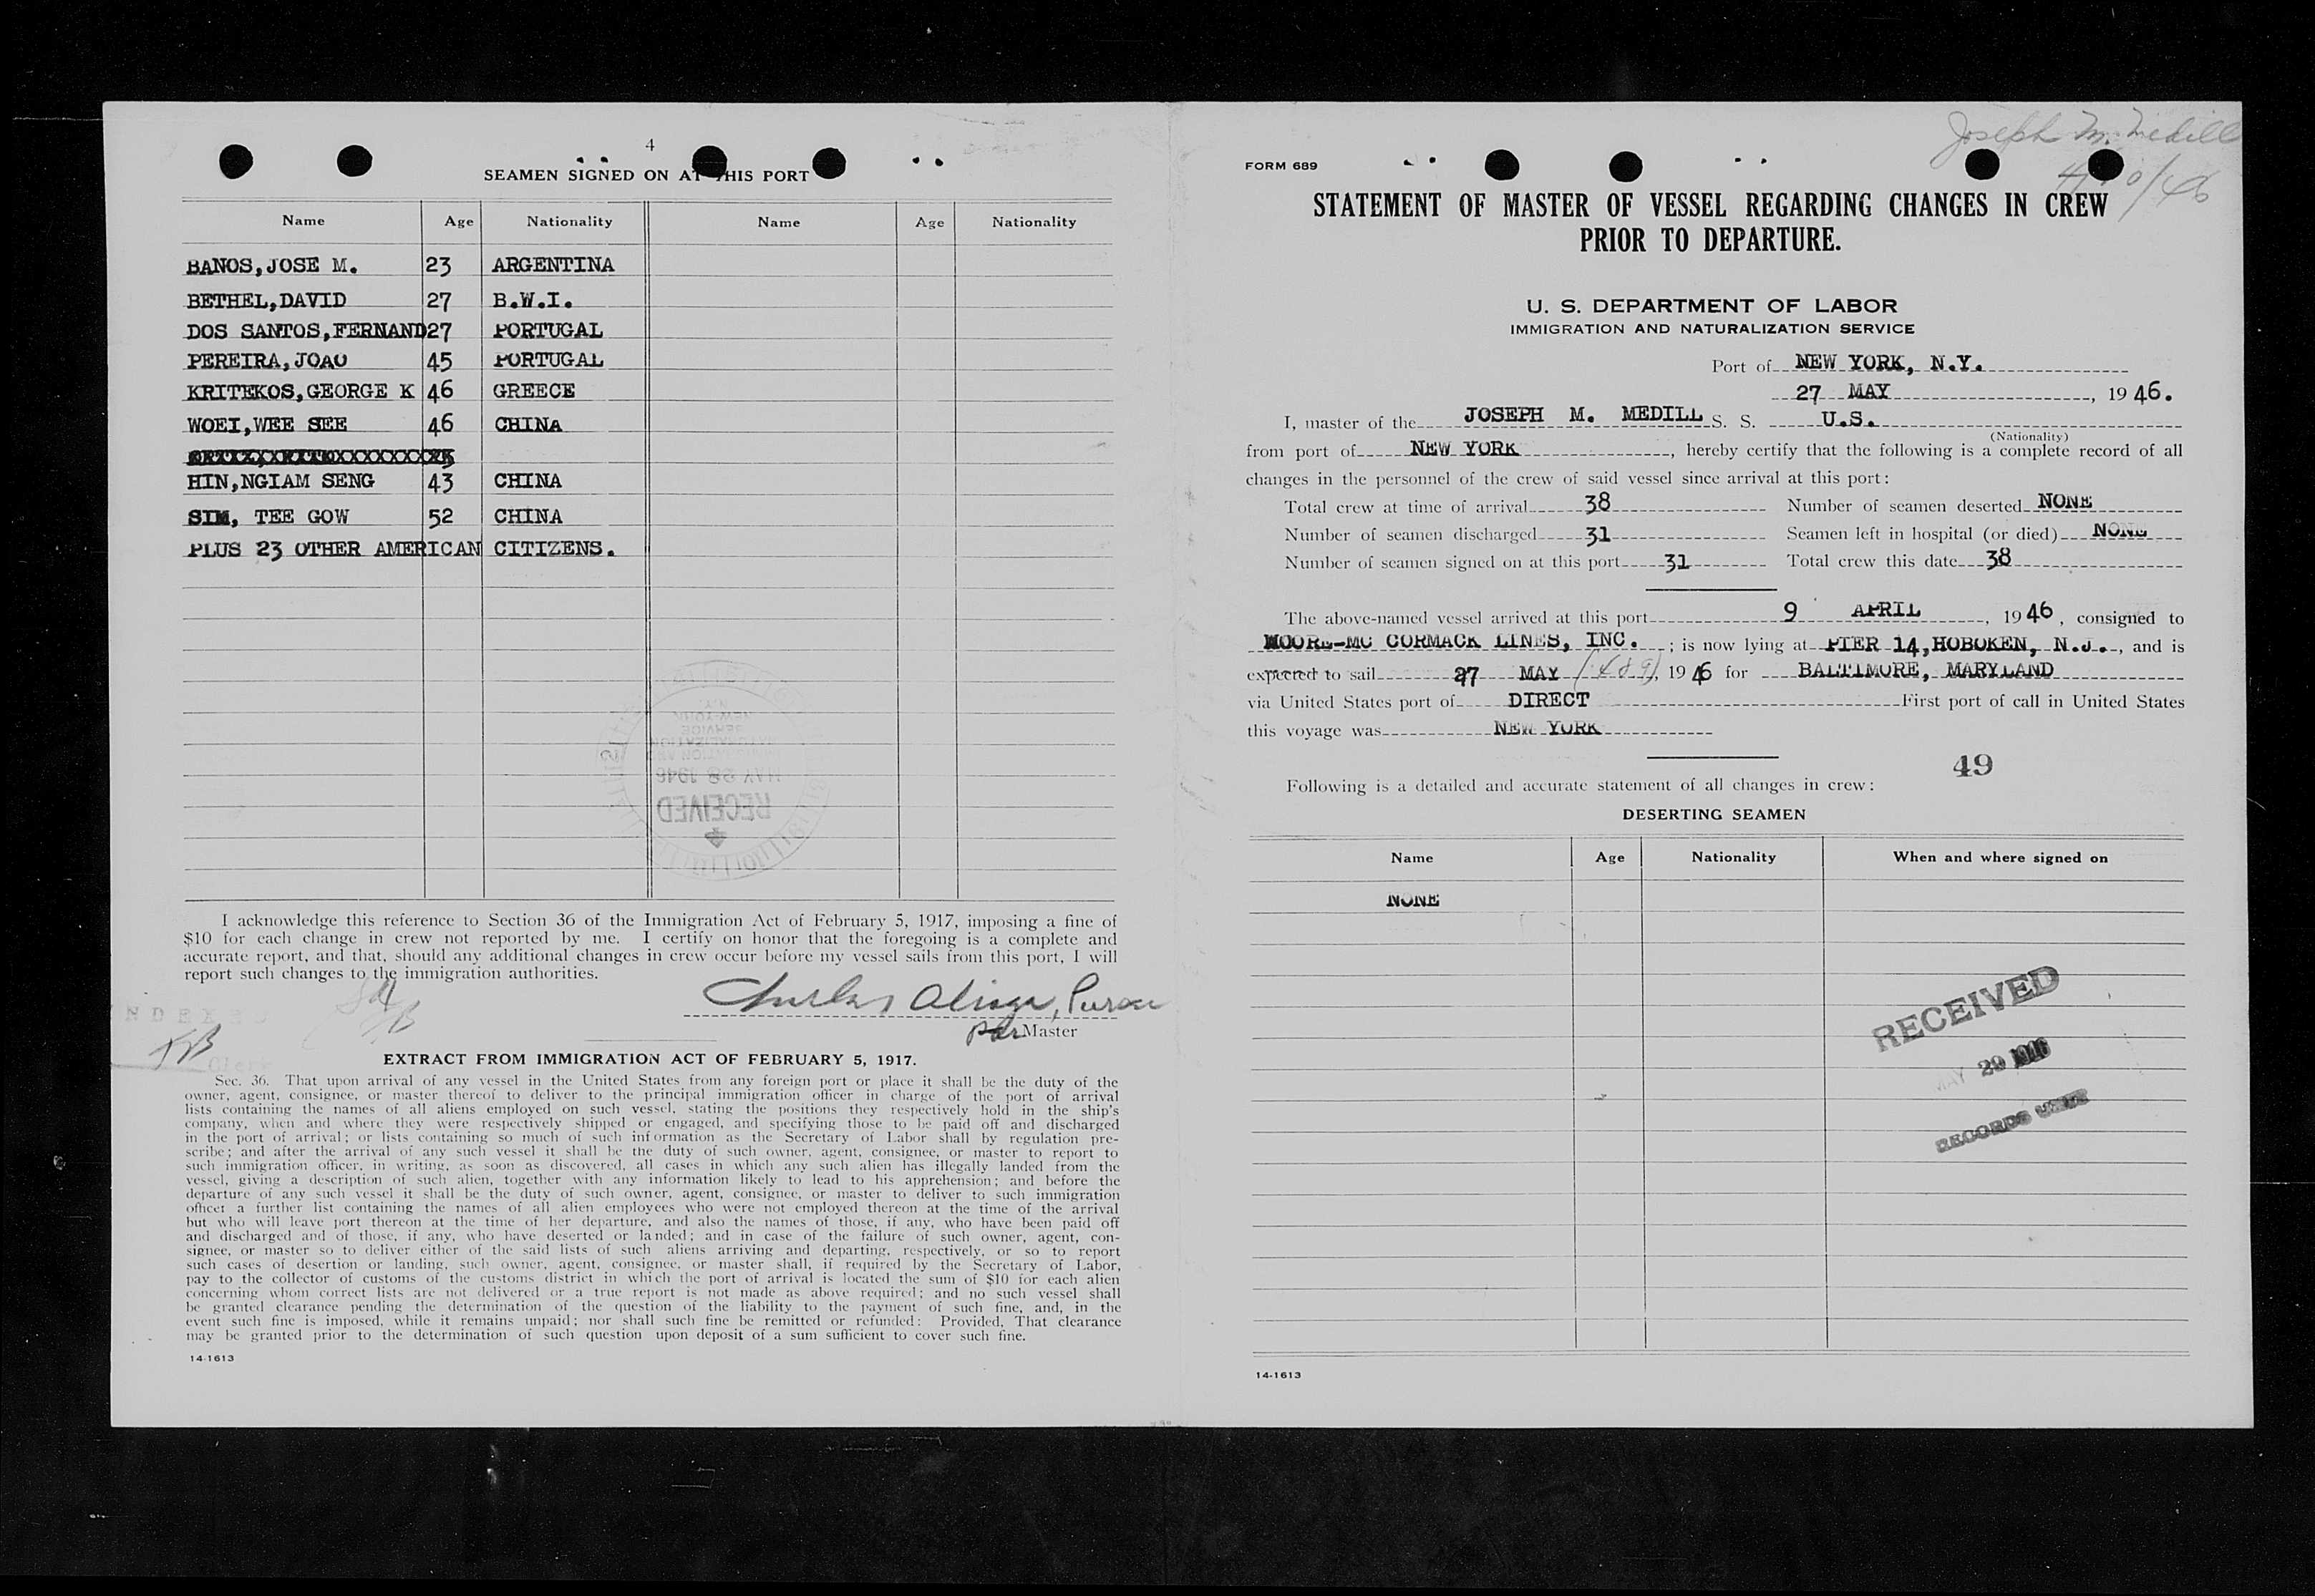 4
SEAMEN SIGNED ON AT THIS PORT
Name Age Nationality Name Age Nationality
BANOS,JOSE M. 23 ARGENTINA
BETHEL,DAVID 27 B.W.I.
DOS SANTOS,FERNAND 27 PORTUGAL
PEREIRA,JOAO 45 PORTUGAL
KRITEKOS,GEORGE K 46 GREECE
WOEI,WEE SEE 46 CHINA
HIN,NGIAM SENG 43 CHINA
SIM, TEE GOW 52 CHINA
PLUS 23 OTHER AMERICAN CITIZENS.
RECEIVED
I acknowledge this reference to Section 36 of the Immigration Act of February 5, 1917, imposing a fine of
$10 for each change in crew not reported by me. I certify on honor that the foregoing is a complete and
accurate report, and that, should any additional changes in crew occur before my vessel sails from this port, I will
report such changes to the immigration authorities.
Master
EXTRACT FROM IMMIGRATION ACT OF FEBRUARY 5, 1917.
Sec. 36. That upon arrival of any vessel in the United States from any foreign port or place it shall be the duty of the
owner, agent, consignee, or master thereof to deliver to the principal immigration officer in charge of the port of arrival
lists containing the names of all aliens employed on such vessel, stating the positions they respectively hold in the ship's
company, when and where they were respectively shipped or engaged, and specifying those to be paid off and discharged
in the port of arrival; or lists containing so much of such information as the Secretary of Labor shall by regulation pre-
scribe; and after the arrival of any such vessel it shall be the duty of such owner, agent, consignee, or master to report to
such immigration officer, in writing, as soon as discovered, all cases in which any such alien has illegally landed from the
vessel, giving a description of such alien, together with any information likely to lead to his apprehension; and before the
departure of any such vessel it shall be the duty of such owner, agent, consignee, or master to deliver to such immigration
officer a further list containing the names of all alien employees who were not employed thereon at the time of the arrival
but who will leave port thereon at the time of her departure, and also the names of those, if any, who have been paid off
and discharged and of those, if any, who have deserted or landed; and in case of the failure of such owner, agent, con-
signee, or master so to deliver either of the said lists of such aliens arriving and departing, respectively, or so to report
such cases of desertion or landing, such owner, agent, consignee, or master shall, if required by the Secretary of Labor,
pay to the collector of customs of the customs district in which the port of arrival is located the sum of $10 for each alien
concerning whom correct lists are not delivered or a true report is not made as above required; and no such vessel shall
be granted clearance pending the determination of the question of the liability to the payment of such fine, and, in the
event such fine is imposed, while it remains unpaid; nor shall such fine be remitted or refunded: Provided, That clearance
may be granted prior to the determination of such question upon deposit of a sum sufficient to cover such fine.
14-1613
Joseph M. Medill
FORM 689
STATEMENT OF MASTER OF VESSEL REGARDING CHANGES IN CREW
PRIOR TO DEPARTURE.
U. S. DEPARTMENT OF LABOR
IMMIGRATION AND NATURALIZATION SERVICE
Port of NEW YORK, N.Y.
27 MAY, 1946.
I, master of the JOSEPH M. MEDILL S. S. U.S.
(Nationality)
from port of NEW YORK, hereby certify that the following is a complete record of all
changes in the personnel of the crew of said vessel since arrival at this port:
Total crew at time of arrival 38 Number of seamen deserted NONE
Number of seamen discharged 31 Seamen left in hospital (or died) NONE
Number of seamen signed on at this port 31 Total crew this date 38
The above-named vessel arrived at this port 9 APRIL, 1946, consigned to
MOORE-MC CORMACK LINES, INC.; is now lying at PIER 14,HOBOKEN, N.J., and is
expected to sail 27 MAY, 1946 for BALTIMORE, MARYLAND
via United States port of DIRECT First port of call in United States
this voyage was NEW YORK
49
Following is a detailed and accurate statement of all changes in crew:
DESERTING SEAMEN
Name Age Nationality When and where signed on
NONE
RECEIVED
MAY 29 1946
RECORDS
14-1613